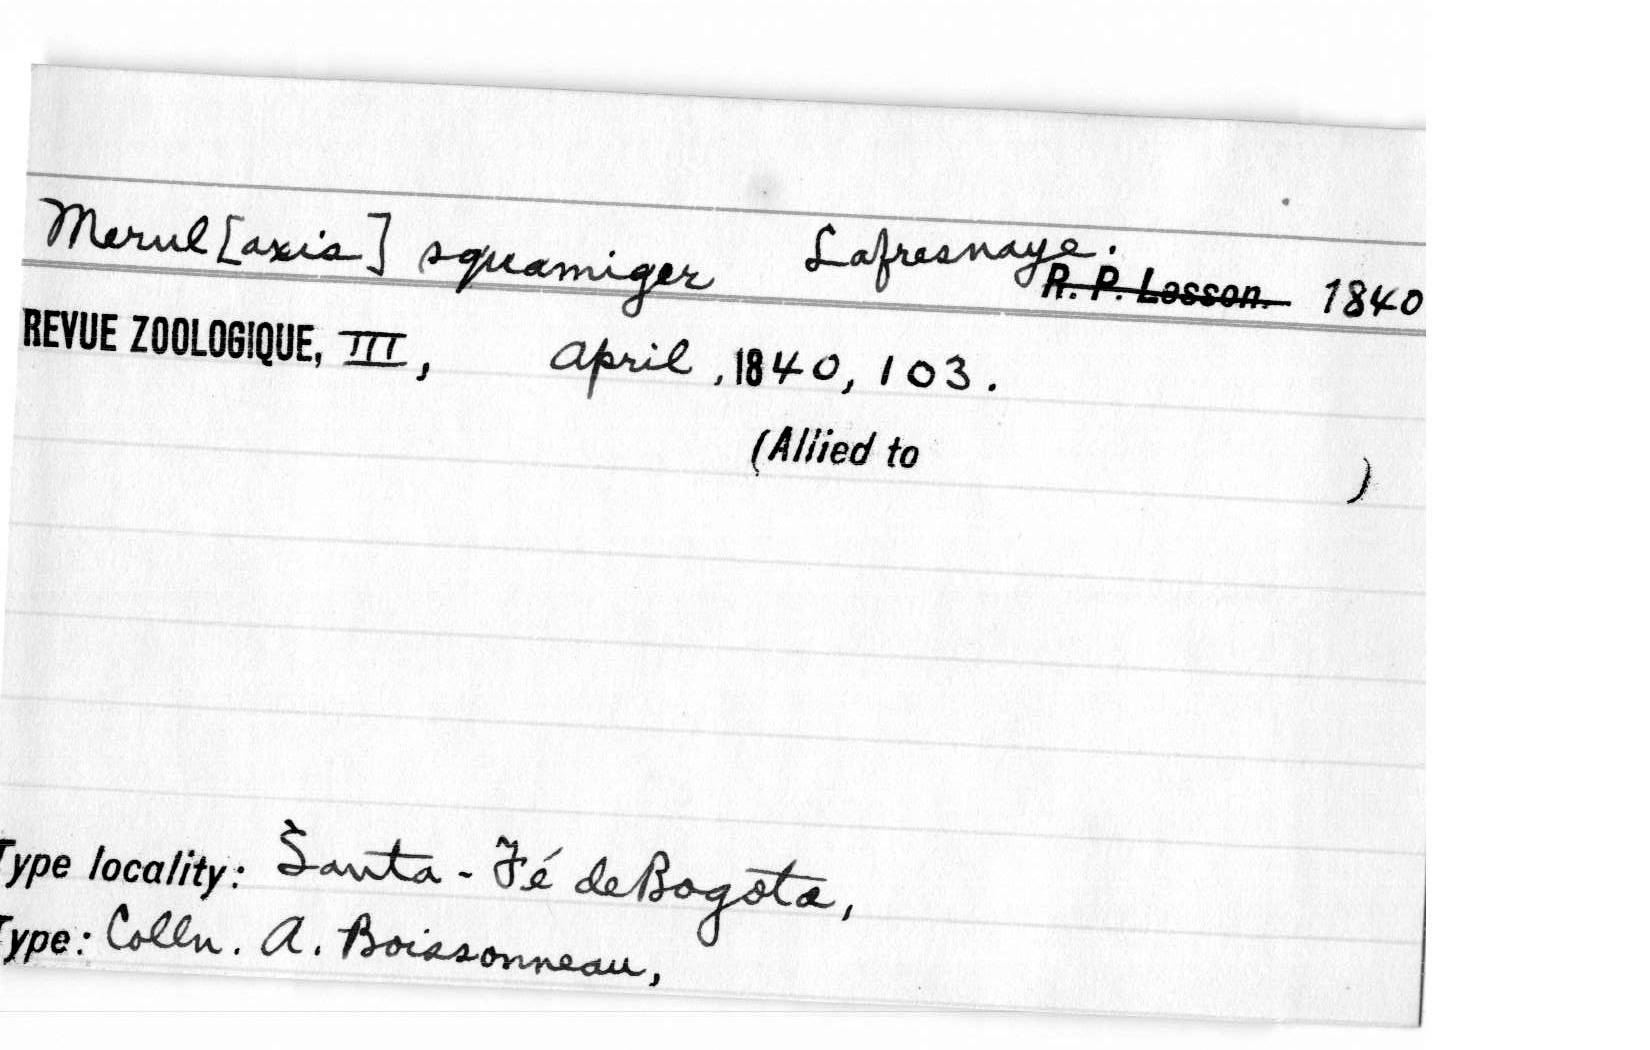 Merul[axis] squamiger Lafresnaye.
R. P. Lesson. 1840
REVUE ZOOLOGIQUE, III, April, 1840, 103.
(Allied to )
Type locality: Santa-Fé de Bogota,
Type: Colln. A. Boissonneau,